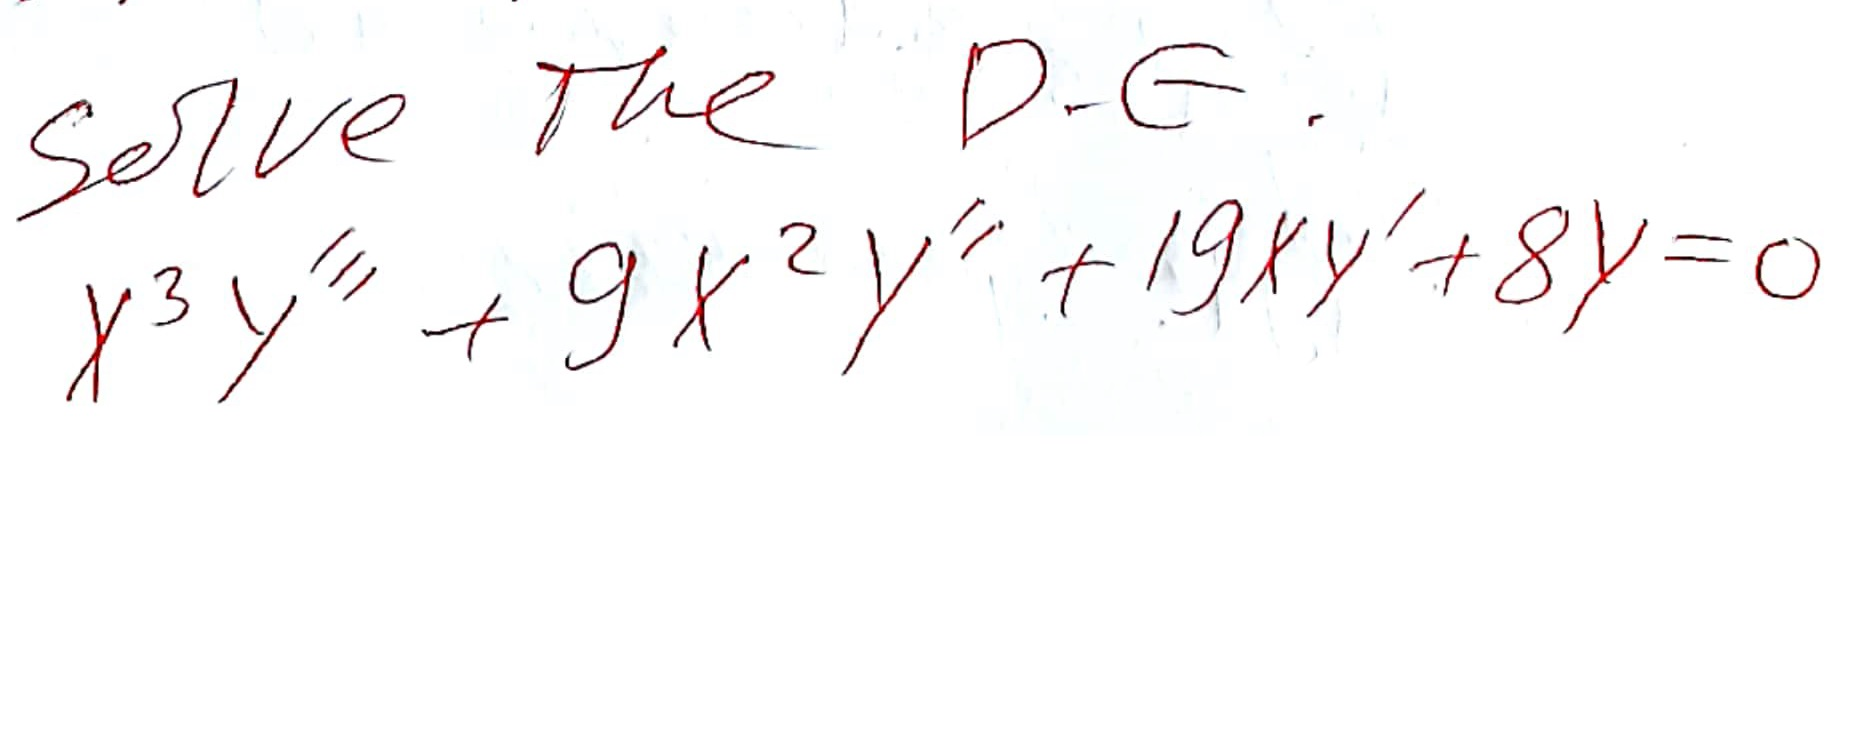 Solve The D.E.
x³y''' + 9x²y'' + 19xy' + 8y = 0